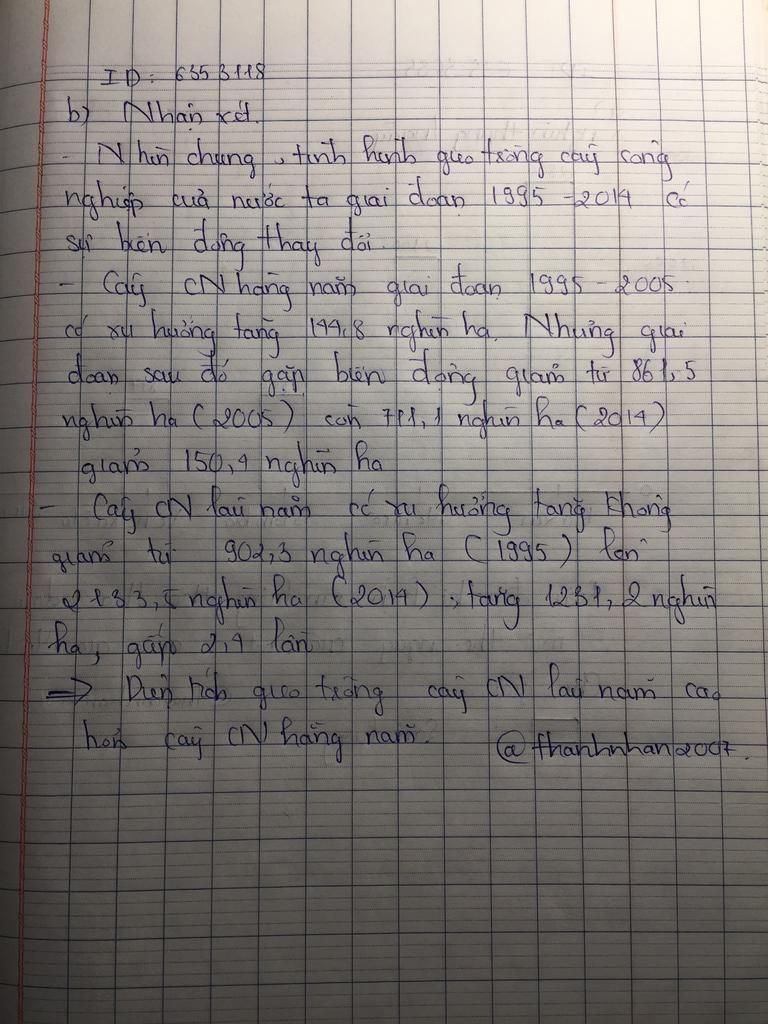 ID: 6353118
b) Nhận xét.
- Nhìn chung, tình hình gieo trồng cây công
nghiệp của nước ta giai đoạn 1995 - 2014 có
sự biến động thay đổi
- Cây CN hằng năm giai đoạn 1995 - 2005
có xu hướng tăng 144,8 nghìn ha. Nhưng giai
đoạn sau đó gặp biến động giảm từ 861,5
nghìn ha (2005) còn 711,1 nghìn ha (2014)
giảm 150,4 nghìn ha
- Cây CN lâu năm có xu hướng tăng không
giảm từ 902,3 nghìn ha (1995) lên
2133,5 nghìn ha (2014), tăng 1231,2 nghìn
ha, gấp 2,4 lần
=> Diện tích gieo trồng cây CN lâu năm cao
hơn cây CN hằng năm. @thanhnhan2007.